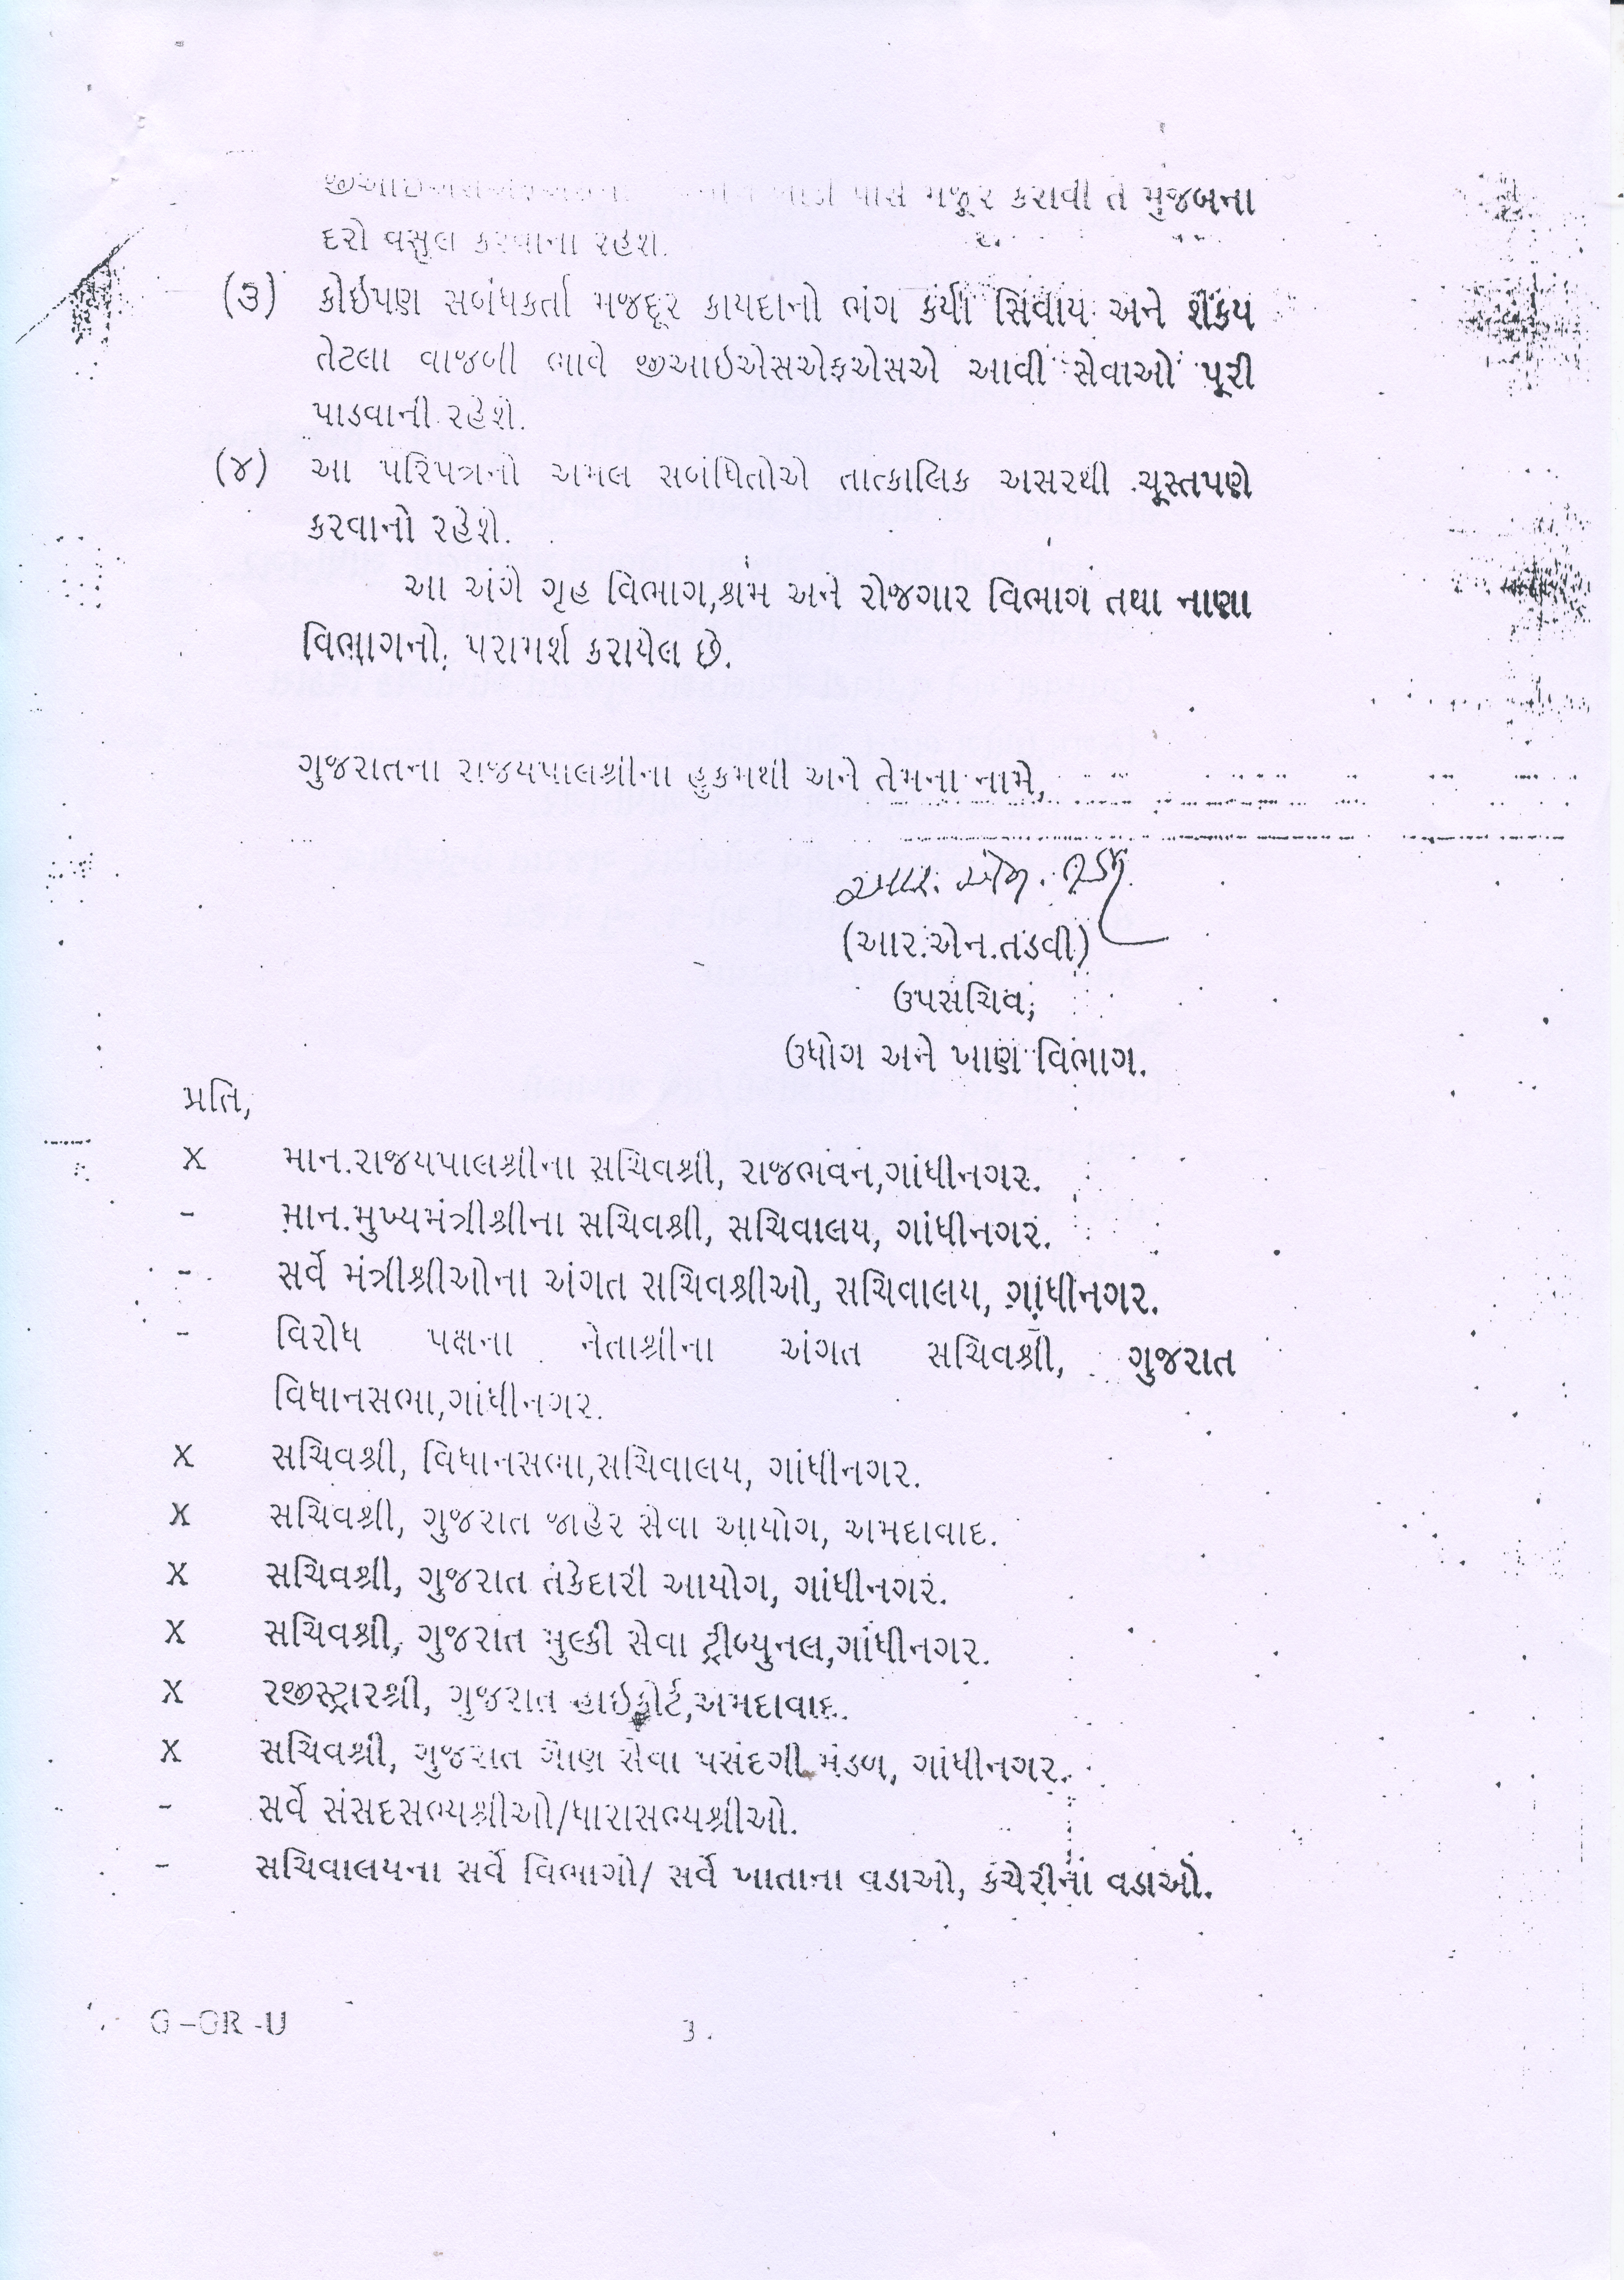 પાસે મજૂર કરાવી તે મુજબના
દરો વસુલ કરવાના રહેશે.
(૩) કોઇપણ સબંધકર્તા મજદૂર કાયદાનો ભંગ કર્યા સિવાય અને શકય
તેટલા વાજબી ભાવે જીઆઇએસએફએસએ આવી સેવાઓ પૂરી
પાડવાની રહેશે.
(૪) આ પરિપત્રનો અમલ સબંધિતોએ તાત્કાલિક અસરથી ચૂસ્તપણે
કરવાનો રહેશે.
આ અંગે ગૃહ વિભાગ,શ્રમ અને રોજગાર વિભાગ તથા નાણા
વિભાગનો પરામર્શ કરાયેલ છે.
ગુજરાતના રાજયપાલશ્રીના હુકમથી અને તેમના નામે,
આર. એન. તડવી
(આર.એન.તડવી)
ઉપસચિવ,
ઉધોગ અને ખાણ વિભાગ.
પ્રતિ,
X માન.રાજયપાલશ્રીના સચિવશ્રી, રાજભવન,ગાંધીનગર.
- માન.મુખ્યમંત્રીશ્રીના સચિવશ્રી, સચિવાલય, ગાંધીનગર.
- સર્વે મંત્રીશ્રીઓના અંગત સચિવશ્રીઓ, સચિવાલય, ગાંધીનગર.
- વિરોધ પક્ષના નેતાશ્રીના અંગત સચિવશ્રી, ગુજરાત
વિધાનસભા,ગાંધીનગર.
X સચિવશ્રી, વિધાનસભા,સચિવાલય, ગાંધીનગર.
X સચિવશ્રી, ગુજરાત જાહેર સેવા આયોગ, અમદાવાદ.
X સચિવશ્રી, ગુજરાત તકેદારી આયોગ, ગાંધીનગર.
X સચિવશ્રી, ગુજરાત મુલ્કી સેવા ટ્રીબ્યુનલ,ગાંધીનગર.
X રજીસ્ટ્રારશ્રી, ગુજરાત હાઇકોર્ટ,અમદાવાદ.
X સચિવશ્રી, ગુજરાત ગૌણ સેવા પસંદગી મંડળ, ગાંધીનગર.
- સર્વે સંસદસભ્યશ્રીઓ/ધારાસભ્યશ્રીઓ.
- સચિવાલયના સર્વે વિભાગો/ સર્વે ખાતાના વડાઓ, કચેરીના વડાઓ.
G –GR -U 3.